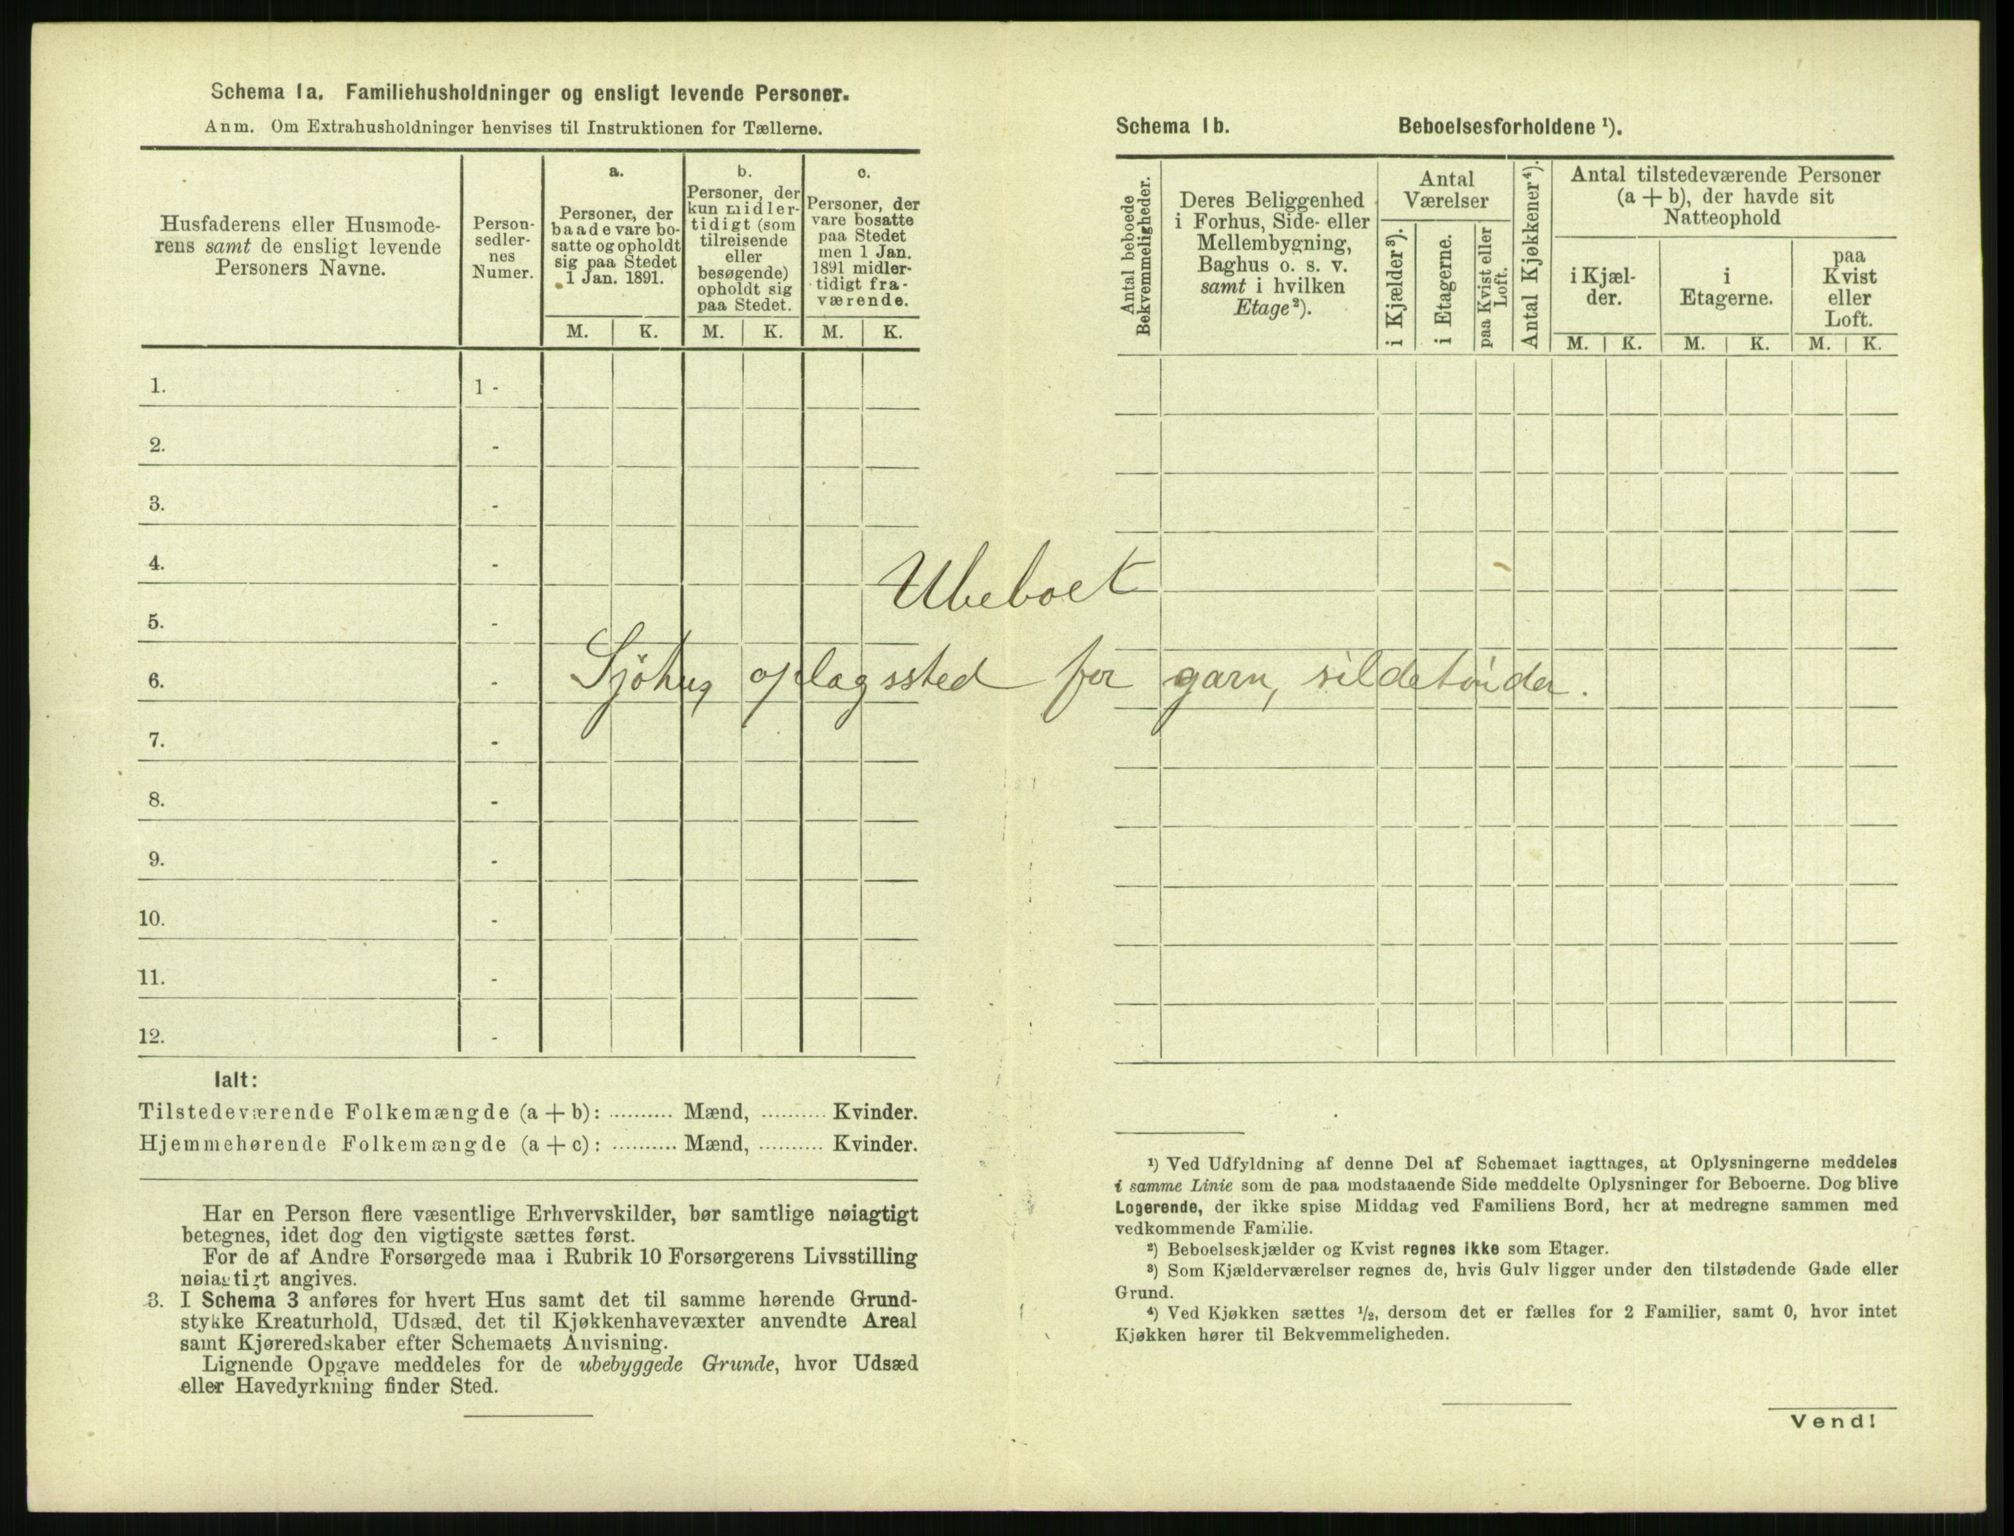 Schema 1a. Familiehusholdninger og ensligt levende Personer.
Anm. Om Extrahusholdninger henvises til Instruktionen for Tællerne.
Husfaderens eller Husmode-
rens samt de ensligt levende
Personers Navne.
Person-
sedler-
nes
Numer.
a.
Personer, der
baade vare bo-
satte og opholdt
sig paa Stedet
1 Jan. 1891.
b.
Personer, der
kun midler-
tidigt (som
tilreisende
eller
besøgende)
opholdt sig
paa Stedet.
c.
Personer, der
vare bosatte
paa Stedet
men 1 Jan.
1891 midler-
tidigt fra-
værende.
M. K. M. K. M. K.
1. 1 -
2. -
3. -
4. -
5. -
6. -
7. -
8. -
9. -
10. -
11. -
12. -
Ubeboet
Sjöhus, oplagssted for garn, sildetönder.
Ialt:
Tilstedeværende Folkemængde (a + b): .......... Mænd, .......... Kvinder.
Hjemmehørende Folkemængde (a + c): .......... Mænd, .......... Kvinder.
Har en Person flere væsentlige Erhvervskilder, bør samtlige nøiagtigt
betegnes, idet dog den vigtigste sættes først.
For de af Andre Forsørgede maa i Rubrik 10 Forsørgerens Livsstilling
nøiagtigt angives.
3. I Schema 3 anføres for hvert Hus samt det til samme hørende Grund-
stykke Kreaturhold, Udsæd, det til Kjøkkenhavevæxter anvendte Areal
samt Kjøreredskaber efter Schemaets Anvisning.
Lignende Opgave meddeles for de ubebyggede Grunde, hvor Udsæd
eller Havedyrkning finder Sted.
Schema 1b. Beboelsesforholdene ¹).
Antal beboede
Bekvemmeligheder.
Deres Beliggenhed
i Forhus, Side- eller
Mellembygning,
Baghus o. s. v.
samt i hvilken
Etage²).
Antal
Værelser
i Kjælder³).
i Etagerne.
paa Kvist eller
Loft.
Antal Kjøkkener⁴).
Antal tilstedeværende Personer
(a + b), der havde sit
Natteophold
i Kjæl-
der.
i
Etagerne.
paa
Kvist
eller
Loft.
M. K. M. K. M. K.
¹) Ved Udfyldning af denne Del af Schemaet iagttages, at Oplysningerne meddeles
i samme Linie som de paa modstaaende Side meddelte Oplysninger for Beboerne. Dog blive
Logerende, der ikke spise Middag ved Familiens Bord, her at medregne sammen med
vedkommende Familie.
²) Beboelseskjælder og Kvist regnes ikke som Etager.
³) Som Kjælderværelser regnes de, hvis Gulv ligger under den tilstødende Gade eller
Grund.
⁴) Ved Kjøkken sættes ¹/₂, dersom det er fælles for 2 Familier, samt 0, hvor intet
Kjøkken hører til Bekvemmeligheden.
Vend!